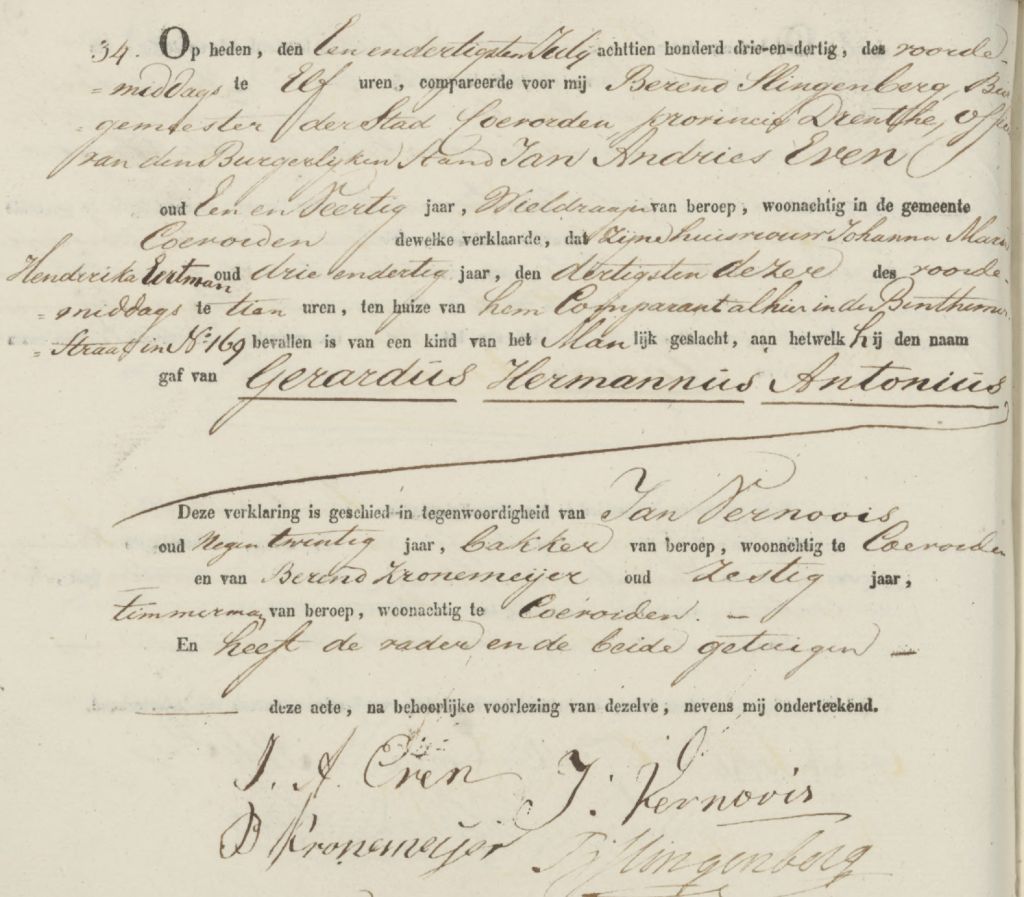 34. Op heden, den Een en dertigsten July achttien honderd drie-en-dertig, des voorde-
=middags te Elf uren, compareerde voor mij Berend Slingenberg, Bur
=gemeester der Stad Coevorden provincie Drenthe,
van den Burgerlyken Stand Jan Andries Even
oud Een en Veertig jaar, Wieldraajer van beroep, woonachtig in de gemeente
Coevorden dewelke verklaarde, dat zijne huisvrouw Johanna Maria
Henderika Eertman oud drie en dertig jaar, den dertigsten dezer des voorde
=middags te tien uren, ten huize van hem Comparant alhier in der Benthemer
=Straat in No 169 bevallen is van een kind van het Manlijk geslacht, aan hetwelk hij den naam
gaf van Gerardus Hermannus Antonius
Deze verklaring is geschied in tegenwoordigheid van Jan Vernoois
oud Negen twintig jaar, bakker van beroep, woonachtig te Coevorden
en van Berend Kronemeijer oud Zestig jaar,
timmerman van beroep, woonachtig te Coevorden. —
En heeft de vader en de beide getuigen —
— deze acte, na behoorlijke voorlezing van dezelve, nevens mij onderteekend.
J. A. Even J. Vernoois
B Kronemeijer B Slingenberg